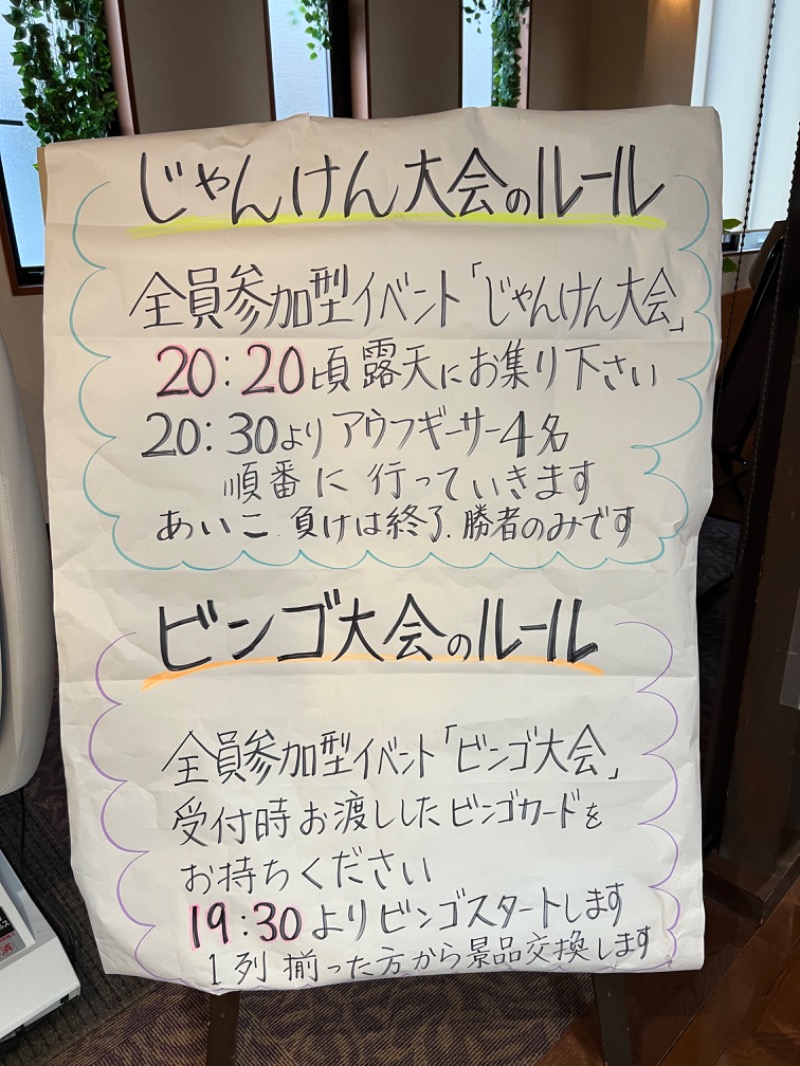 じゃんけん大会のルール
全員参加型イベント「じゃんけん大会」
20:20頃露天にお集り下さい
20:30よりアウフギーサー4名
順番に行っていきます
あいこ、負けは終了、勝者のみです
ビンゴ大会のルール
全員参加型イベント「ビンゴ大会」
受付時お渡ししたビンゴカードを
お持ちください
19:30よりビンゴスタートします
1列揃った方から景品交換します